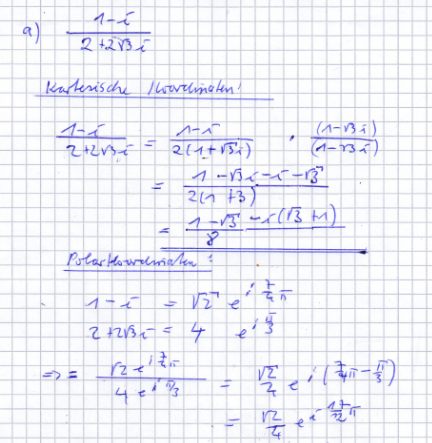 a) \frac{1-i}{2+2\sqrt{3}i}
Kartesische Koordinaten:
\frac{1-i}{2+2\sqrt{3}i} = \frac{1-i}{2(1+\sqrt{3}i)} · \frac{(1-\sqrt{3}i)}{(1-\sqrt{3}i)}
= \frac{1-\sqrt{3}i-i-\sqrt{3}}{2(1+3)}
= \frac{1-\sqrt{3}-i(\sqrt{3}+1)}{8}
Polarkoordinaten:
1-i = \sqrt{2} e^{i\frac{7}{4}π}
2+2\sqrt{3}i = 4 e^{i\frac{π}{3}}
=> = \frac{\sqrt{2} e^{i\frac{7}{4}π}}{4 e^{iπ/3}} = \frac{\sqrt{2}}{4} e^{i(\frac{7}{4}π-\frac{π}{3})}
= \frac{\sqrt{2}}{4} e^{i\frac{17}{12}π}